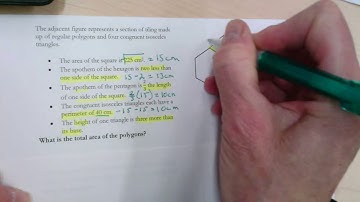 The adjacent figure represents a section of tiling made
up of regular polygons and four congruent isosceles
triangles.
• The area of the square is 225 cm². = 15cm
• The apothem of the hexagon is two less than
one side of the square. 15 - 2 = 13cm
• The apothem of the pentagon is 2/3 the length
of one side of the square. 2/3 (15) = 10cm
• The congruent isosceles triangles each have a
perimeter of 40 cm. -15 -15 = 10cm
• The height of one triangle is three more than
its base.
What is the total area of the polygons?